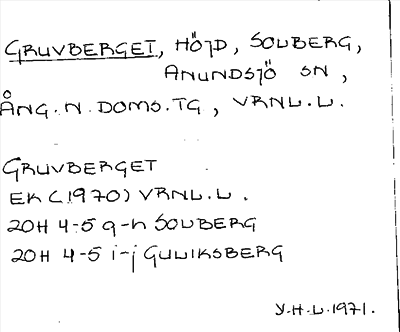 GRUVBERGET, HÖJD, SOLBERG,
ANUNDSJÖ SN,
ÅNG.N.DOMS.TG, VRNL.L.
GRUVBERGET
EK (1970) VRNL.L.
20H 4-5 g-h SOLBERG
20H 4-5 i-j GULIKSBERG
Y.H.L.1971.